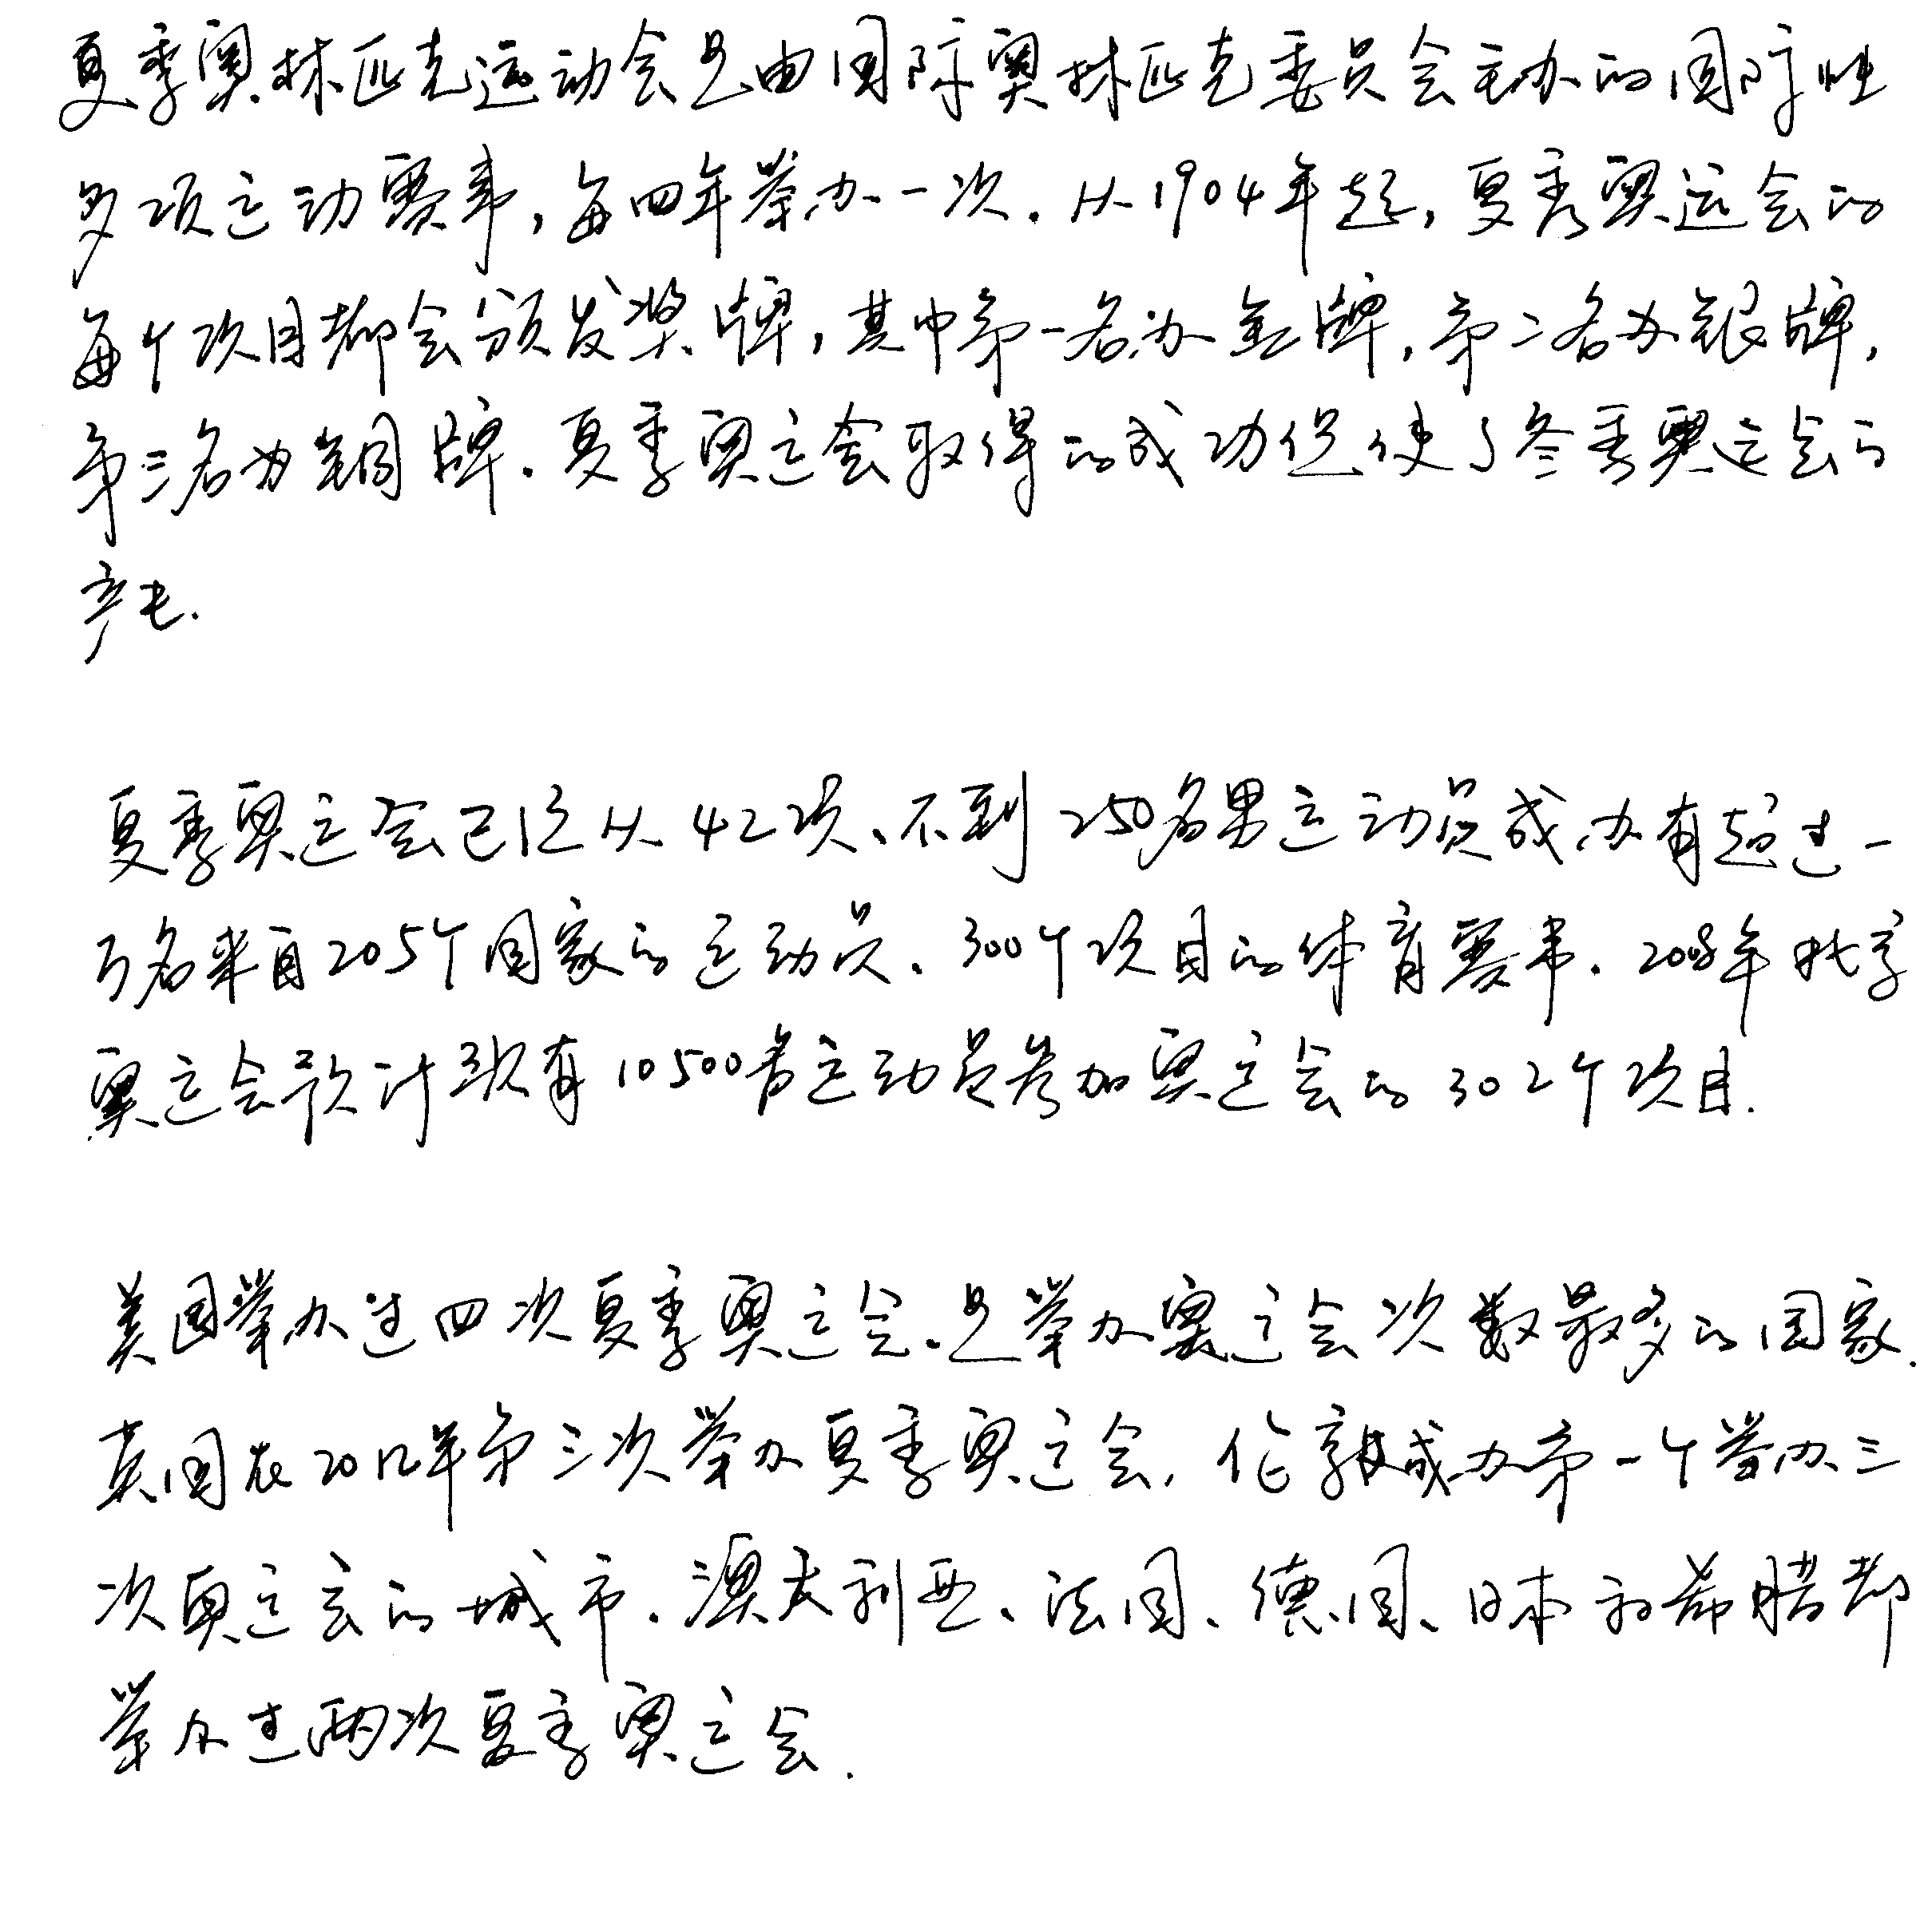 夏季奥林匹克运动会是由国际奥林匹克委员会主办的国际性
多项运动赛事,每四年举办一次.从1904年起,夏季奥运会的
每个项目都会颁发奖牌,其中第一名为金牌,第二名为银牌,
第三名为铜牌.夏季奥运会取得的成功促使了冬季奥运会的
产生.
夏季奥运会已经从42项、不到250名男运动员成为有超过一
万名来自205个国家的运动员、300个项目的体育赛事.2008年北京
奥运会预计现有10500名运动员参加奥运会的302个项目.
美国举办过四次夏季奥运会.是举办奥运会次数最多的国家.
英国在2012年第三次举办夏季奥运会,伦敦成为第一个举办三
次奥运会的城市.澳大利亚、法国、德国、日本和希腊都
举办过两次夏季奥运会.